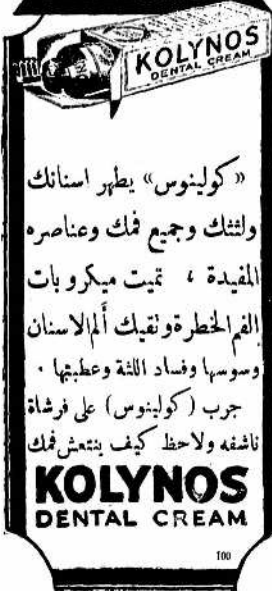 KOLYNOS
DENTAL CREAM
«كولينوس» يطهر اسنانك
ولثتك وجميع فمك وعناصره
المفيدة ، تميت ميكروبات
الفم الخطرة وتقيك ألم الاسنان
وسوسها وفساد اللثة وعطبها .
جرب (كولينوس) على فرشاة
ناشفه ولاحظ كيف ينتعش فمك
KOLYNOS
DENTAL CREAM
100